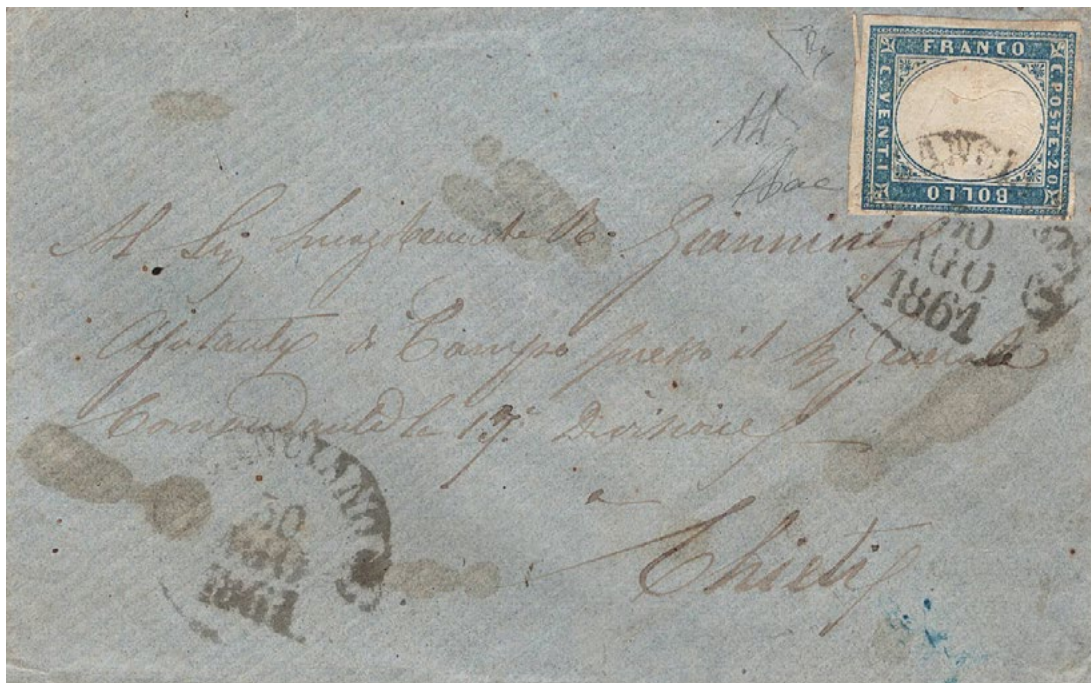 FRANCO
C. POSTE. 20
BOLLO
C. VENTI
20
AGO
1861
Al Sig Luogotenente R. Giannini
Ajutante di Campo presso il Sig Generale
Comandante la 17ª Divisione
a
Chieti
LANCIANO
20
AGO
1861